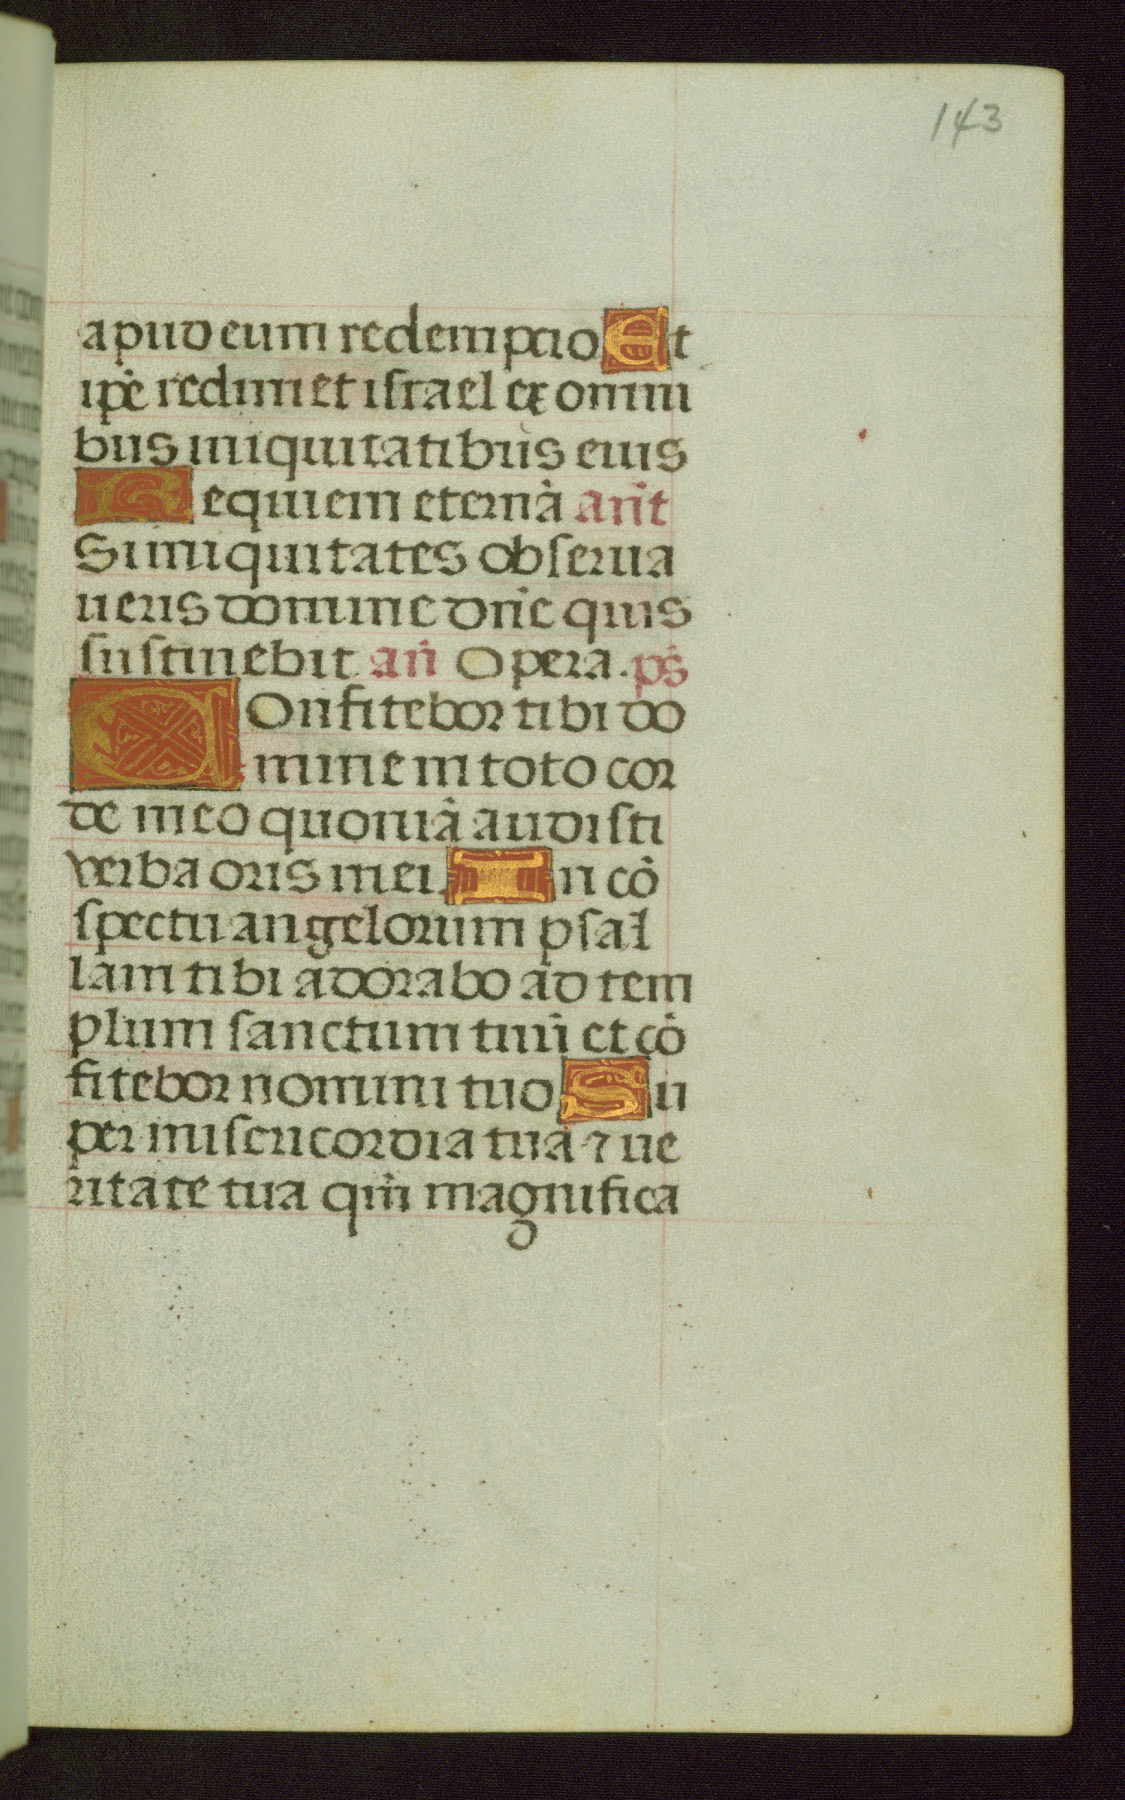 143
apud eum redempcio Et
ip̄e redimet israel ex omni
bus iniquitatibus eius
Requiem eternā an̄t
Si iniquitates obserua
ueris domine dn̄e quis
sustinebit an̄ Opera. ps̄
COnfitebor tibi do
mine in toto cor
de meo quoniā audisti
verba oris mei. In cō
spectu angelorum psal
lam tibi adorabo ad tem
plum sanctum tuū et cō
fitebor nomini tuo Su
per misericordia tuā ⁊ ue
ritate tua qm̄ magnifica